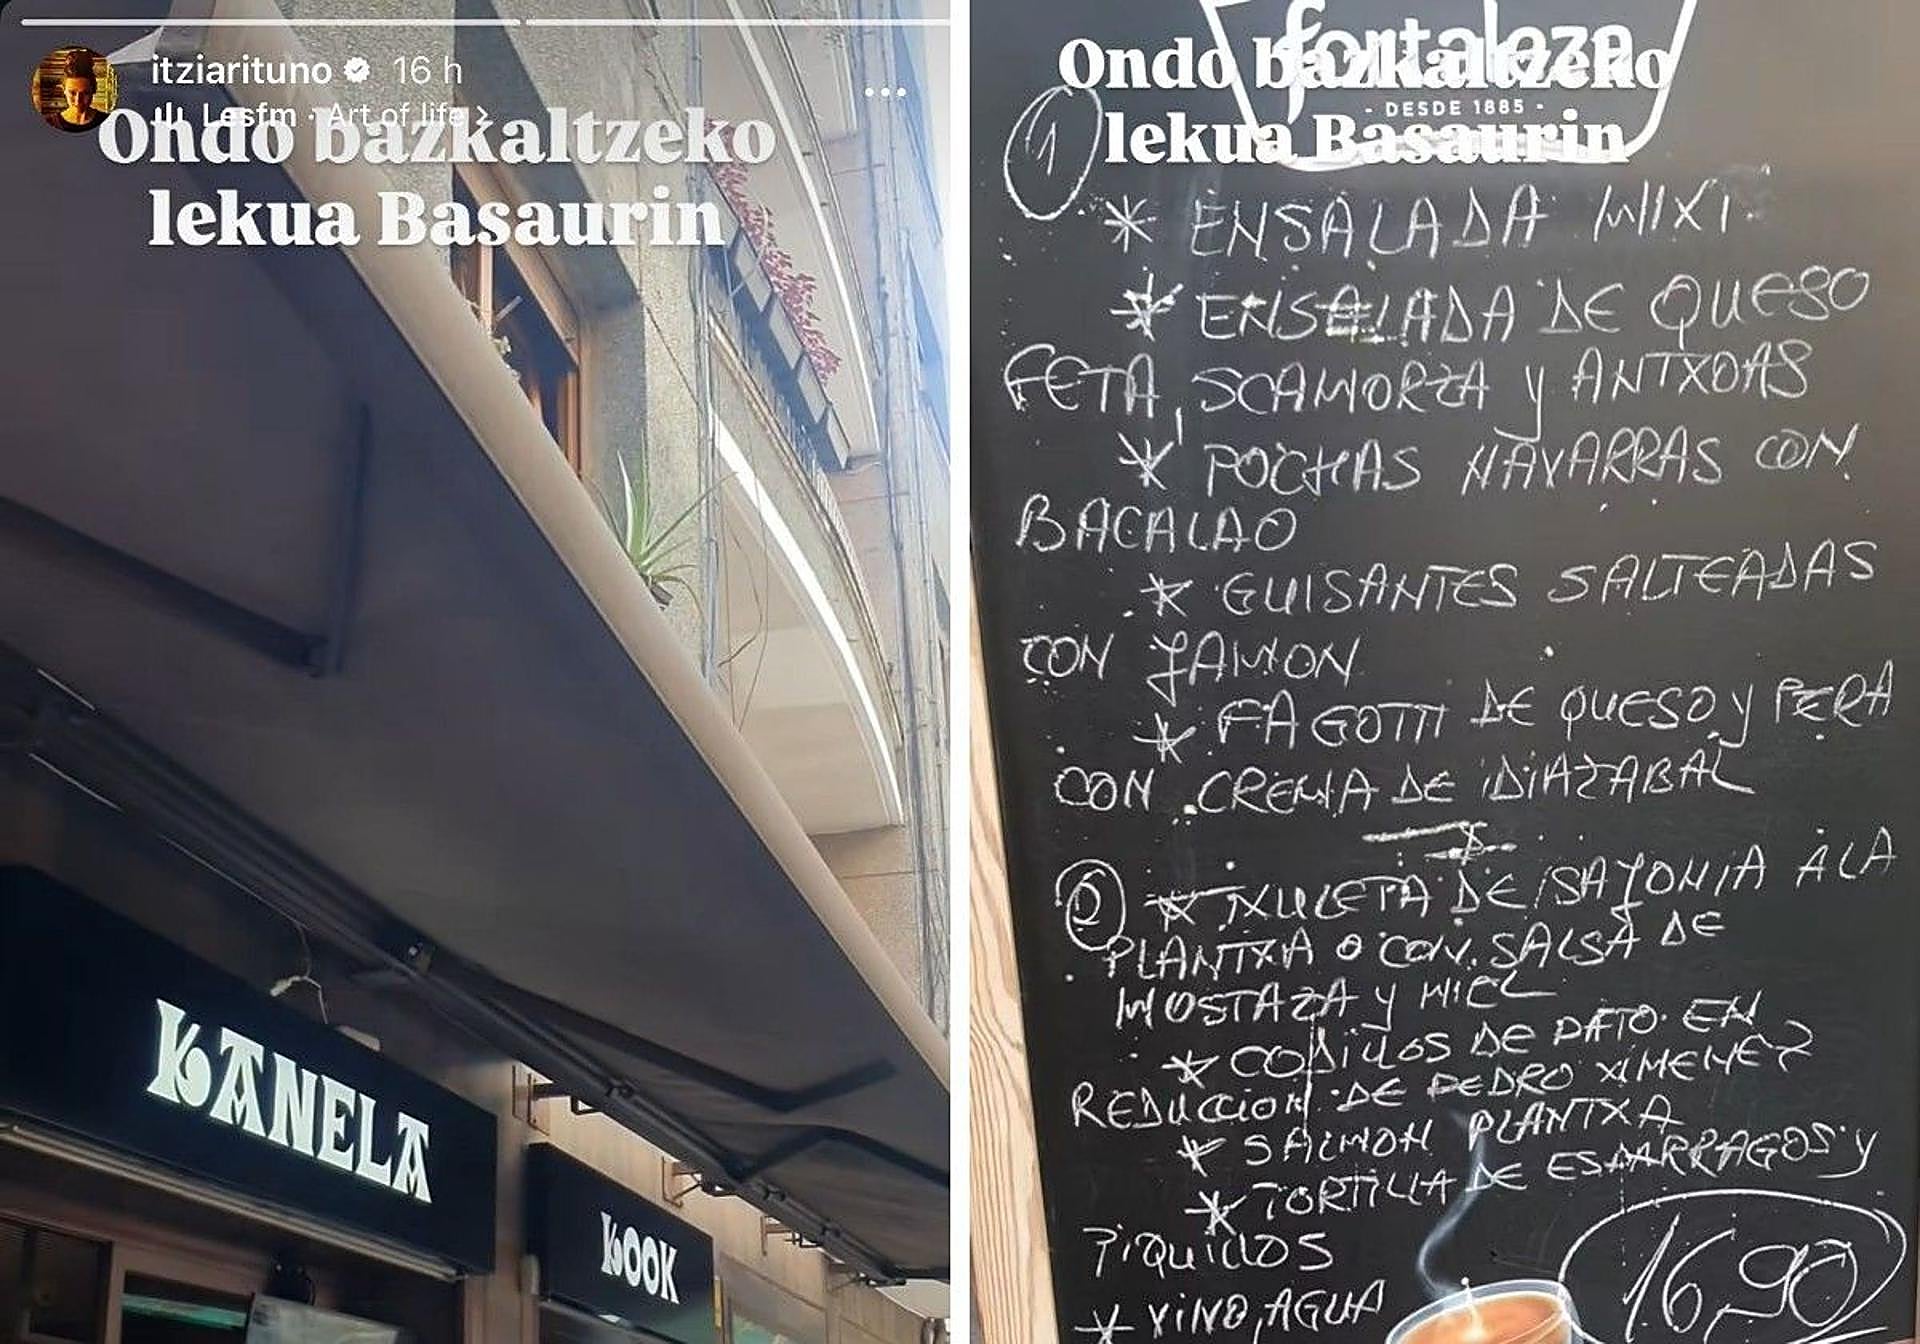 itziarituno 16 h
Lesfm · Art of life >
Ondo bazkaltzeko
lekua Basaurin
KANELA
KOOK
fortaleza
- DESDE 1885 -
Ondo bazkaltzeko
lekua Basaurin
1
* ENSALADA MIXT.
* ENSALADA DE QUESO
FETA, SCAMORZA y ANTXOAS
* POCHAS NAVARRAS CON
BACALAO
* GUISANTES SALTEADAS
CON JAMON
* FAGOTTI DE QUESO y PERA
CON CREMA DE iDiAZABAL
2 * TXULETA DE SAJONIA A LA
PLANTXA O CON SALSA DE
MOSTAZA y MIEL
* CODiLLOS DE PATO EN
REDUCCION DE PEDRO XIMENEZ
* SALMON PLANTXA
* TORTILLA DE ESPARRAGOS y
PiQUiLLOS
* VINO, AGUA
16,90